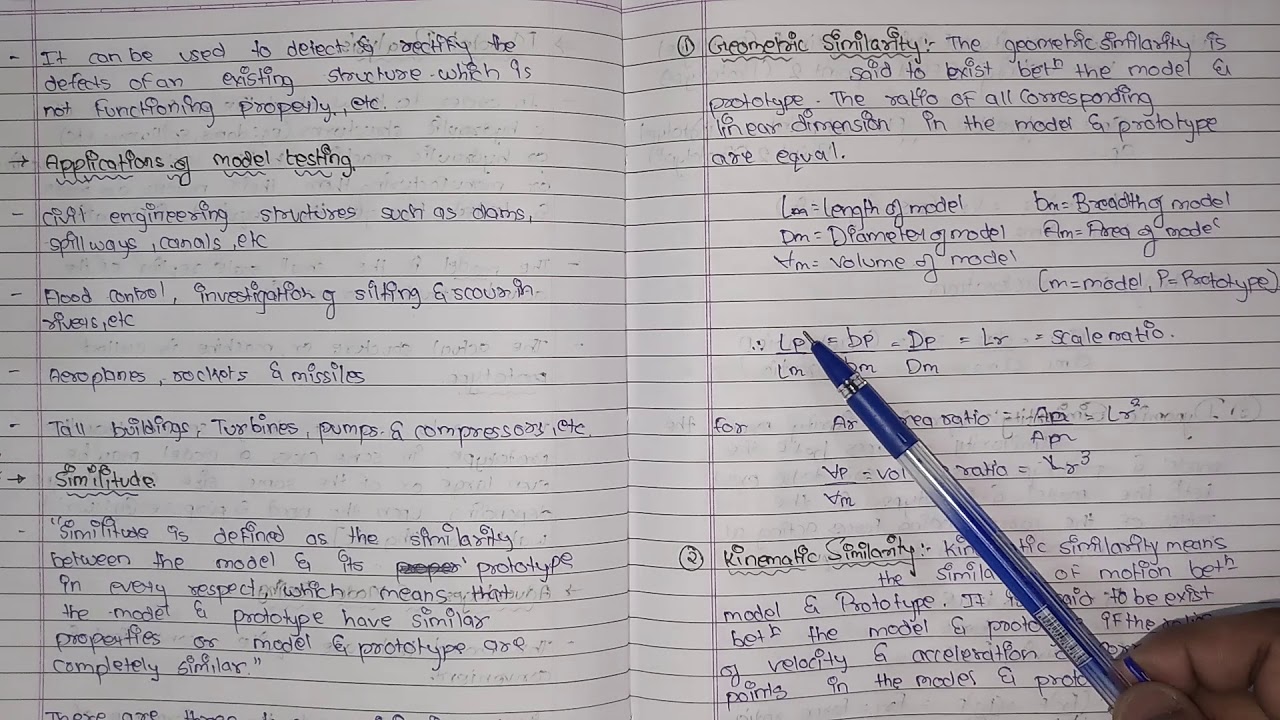 - It can be used to detect & rectify the
defects of an existing structure which is
not functioning properly, etc.
→ Applications of model testing.
- Civil engineering structures such as dams,
spillways, canals, etc
- Flood control, investigation of silting & scour in
rivers, etc
- Aeroplanes, rockets & missiles
- Tall buildings, Turbines, pumps & compressors, etc.
→ Similitude.
- "Similitude is defined as the similarity
between the model & its prototype
in every respect, which means that
the model & prototype have similar
properties or model & prototype are
completely similar."
There are three
① Geometric Similarity:- The geometric similarity is
said to exist betⁿ the model &
prototype. The ratio of all corresponding
linear dimension in the model & prototype
are equal.
Lm = Length of model bm = Breadth of model
Dm = Diameter of model Am = Area of model
∀m = volume of model
(m = model, P = Prototype)
∴ Lp = bp = Dp = Lr = scale ratio.
Lm bm Dm
for Ar ratio = Ap = Lr²
Am
∀p = ratio = Lr³
∀m
② Kinematic Similarity:- similarity means
the of motion betⁿ
model & Prototype. It to be exist
betⁿ the model & if the
of velocity & acceleration
points in the model &